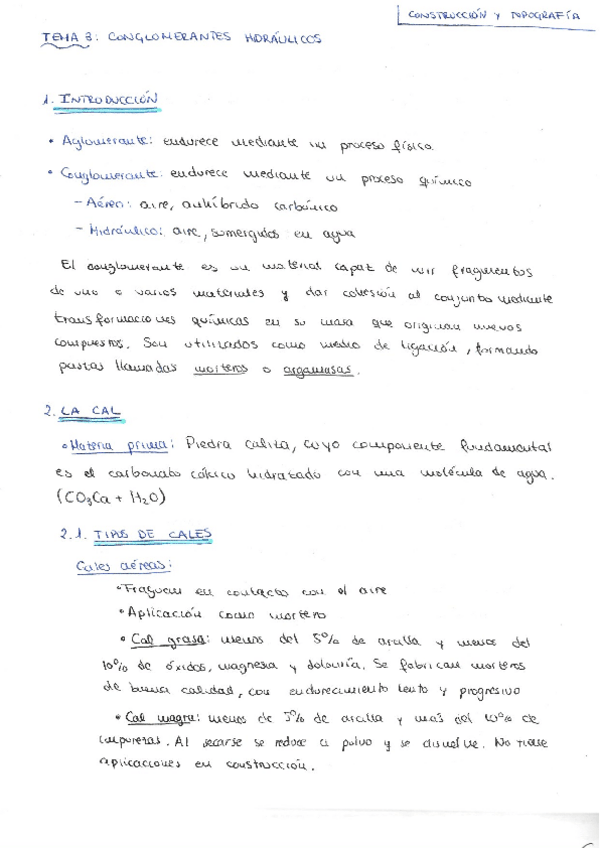 CONSTRUCCIÓN Y TOPOGRAFÍA
TEMA 3: CONGLOMERANTES HIDRÁULICOS
1. INTRODUCCIÓN
• Aglomerante: endurece mediante un proceso físico.
• Conglomerante: endurece mediante un proceso químico
- Aéreo: aire, anhíbrido carbónico
- Hidráulico: aire, sumergidos en agua
El conglomerante es un material capaz de unir fragmentos
de uno o varios materiales y dar cohesión al conjunto mediante
transformaciones químicas en su masa que originan nuevos
compuestos. Son utilizados como medio de ligación, formando
pastas llamadas morteros o argamasas.
2. LA CAL
• Materia prima: Piedra caliza, cuyo componente fundamental
es el carbonato cálcico hidratado con una molécula de agua.
(CO₃Ca + H₂O)
2.1. TIPOS DE CALES
Cales aéreas:
• Fraguan en contacto con el aire
• Aplicación como mortero
• Cal grasa: menos del 5% de arcilla y menos del
10% de óxidos, magnesia y dolomía. Se fabrican morteros
de buena calidad, con endurecimiento lento y progresivo
• Cal magra: menos de 5% de arcilla y más del 10% de
impurezas. Al secarse se reduce a polvo y se disuelve. No tiene
aplicaciones en construcción.